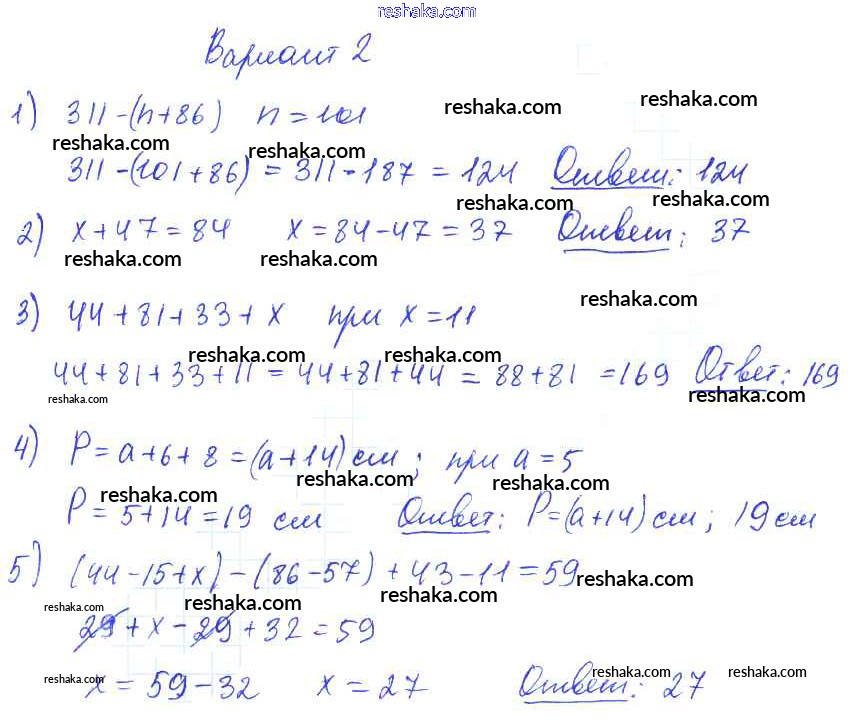 reshaka.com
Вариант 2
1) 311-(n+86) n=101
reshaka.com reshaka.com
reshaka.com reshaka.com
311-(101+86) = 311-187 = 124 Ответ: 124
reshaka.com reshaka.com
2) x+47=84 x=84-47=37 Ответ: 37
reshaka.com reshaka.com
reshaka.com
3) 44+81+33+x при x=11
reshaka.com reshaka.com
44+81+33+11=44+81+44=88+81=169 Ответ: 169
reshaka.com reshaka.com
4) P=a+6+8=(a+14) см; при a=5
reshaka.com reshaka.com reshaka.com
P=5+14=19 см Ответ: P=(a+14) см; 19 см
5) (44-15+x)-(86-57)+43-11=59
reshaka.com
reshaka.com reshaka.com reshaka.com
29+x-29+32=59
reshaka.com reshaka.com reshaka.com
x=59-32 x=27 Ответ: 27